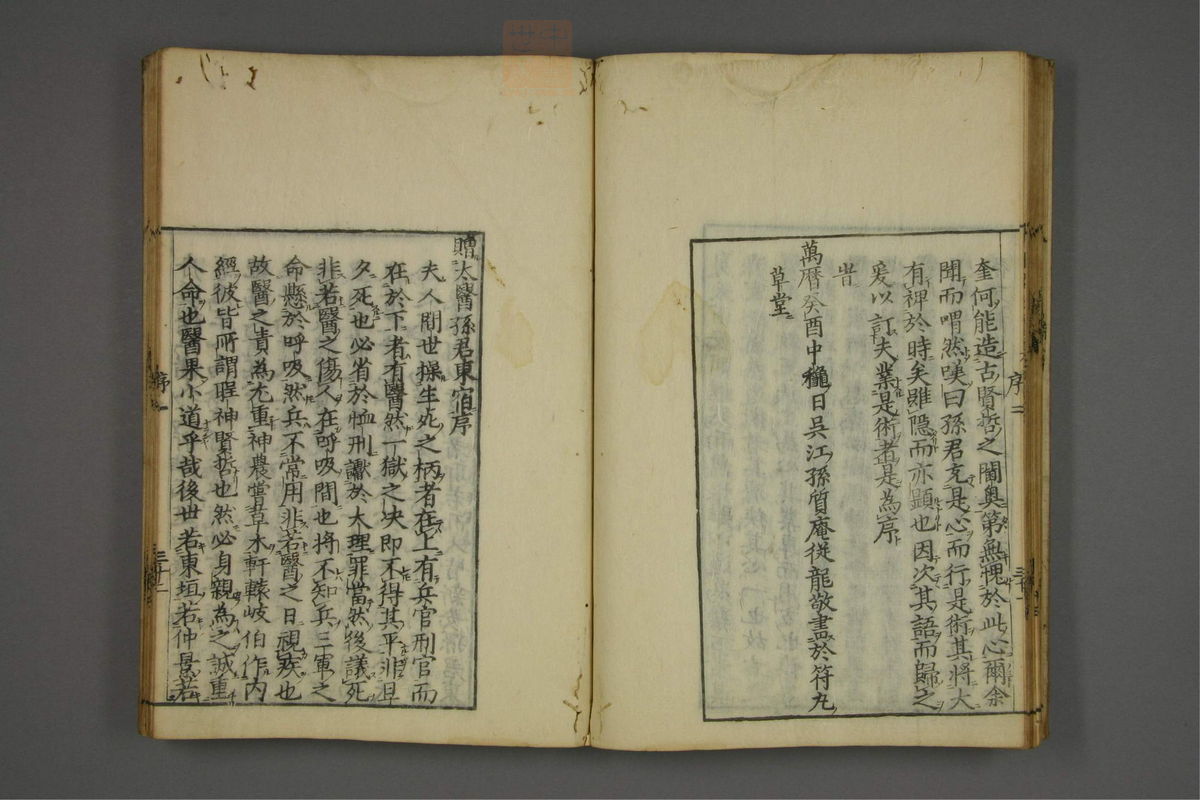 奎何能造古賢哲之閫奥第無愧於此心爾余
聞而喟然嘆曰孫君充是心而行是術其將大
有裨於時矣雖隐而亦顕也因次其語而歸之
爰以訂夫業是術者是為序
旹
萬暦癸酉中穐日吳江孫質庵従龍敬書於符九
草堂
序二
贈太醫孫君東宿序
夫人間世操生死之柄者在上有兵官刑官而
在於下者有醫然一獄之决即不得其平非旦
夕死也必省於恤刑讞於大理罪當然後議死
非若醫之傷人在呼吸間也将不知兵三軍之
命懸於呼吸然兵不常用非若醫之日視疾也
故醫之責為尤重神農嘗草木軒轅岐伯作内
經彼皆所謂聖神賢哲也然必身親為之誠重
人命也醫果小道乎哉後世若東垣若仲景若
序一